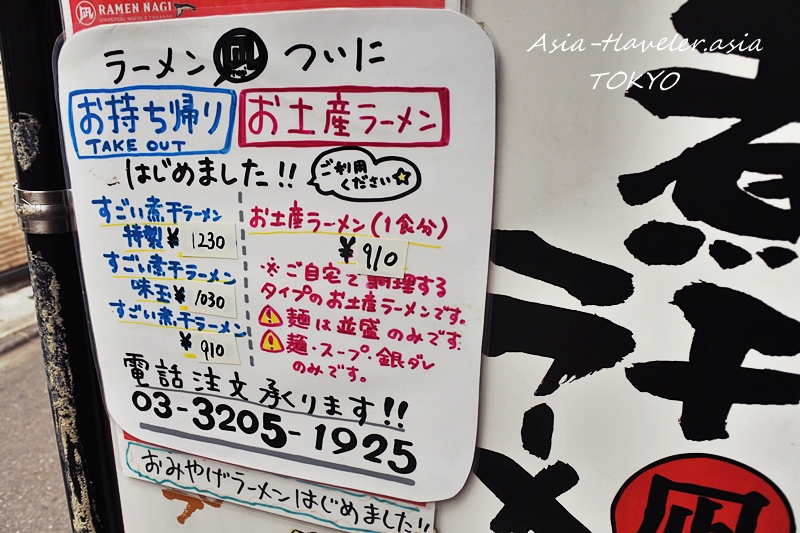 凪 RAMEN NAGI
Asia-Traveler.asia
TOKYO
ラーメン凪ついに
お持ち帰り
TAKE OUT
お土産ラーメン
はじめました!!
ご利用
ください☆
すごい煮干ラーメン
特製¥1230
すごい煮干ラーメン
味玉¥1030
すごい煮干ラーメン
¥910
お土産ラーメン(1食分)
¥910
※ご自宅で調理する
タイプのお土産ラーメンです。
麺は並盛のみです。
麺・スープ・銀ダレ
のみです。
電話注文承ります!!
03-3205-1925
おみやげラーメンはじめました!!
煮干
ラーメ
凪